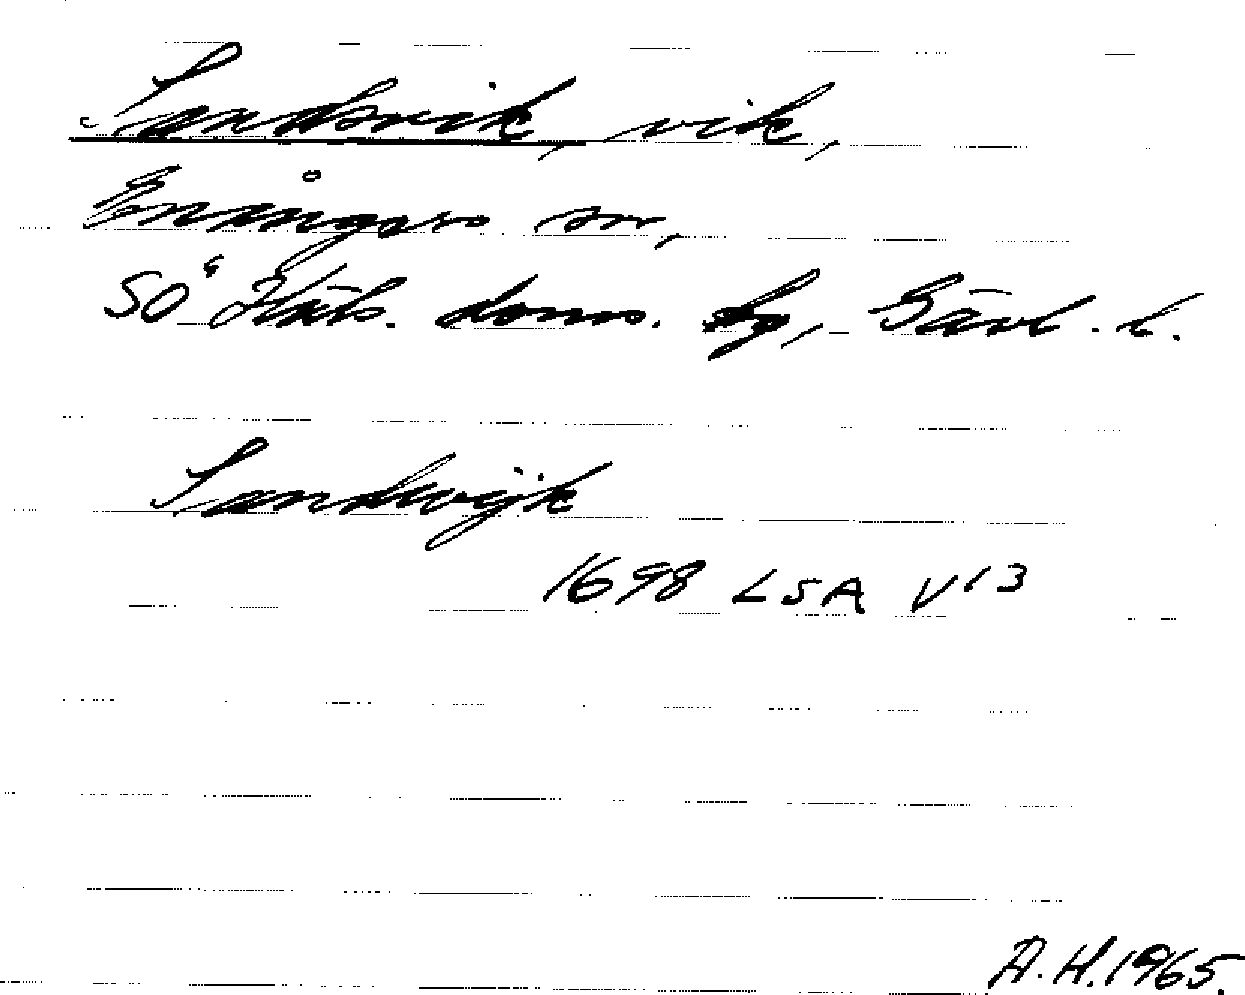 Sandsvik, vik,
Enångers sn,
SÖ Häls. doms. dg, Gävl. l.
Sandwijk
1698 LSA V13
A.H. 1965.